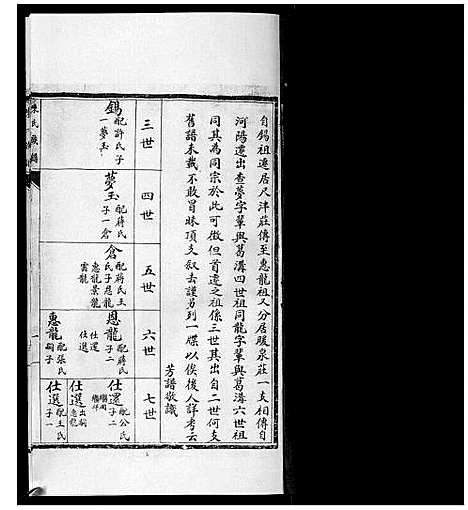 自錫祖遷居尺泮莊傳至惠龍祖又分居暖泉莊一支相傳自
河陽遷出查夢字輩與葛溝四世祖同龍字輩與葛溝六世祖
同其為同宗於此可徵但首遷之祖係三世其出自二世何支
舊譜未載不敢冒昧頂支叙去謹另列一牒以俟後人詳考云
芳譜敬識
三世
錫 配許氏子一夢玉
四世
夢玉 配蔣氏子一倉
五世
倉 配蔣氏王氏子恩龍惠龍景龍雲龍
六世
恩龍 配蔣氏子二仕還仕選
惠龍 配張氏嗣子仕選
七世
仕還 配公氏子二
仕選 出嗣惠龍
仕選 配王氏子一
氏族譜
一